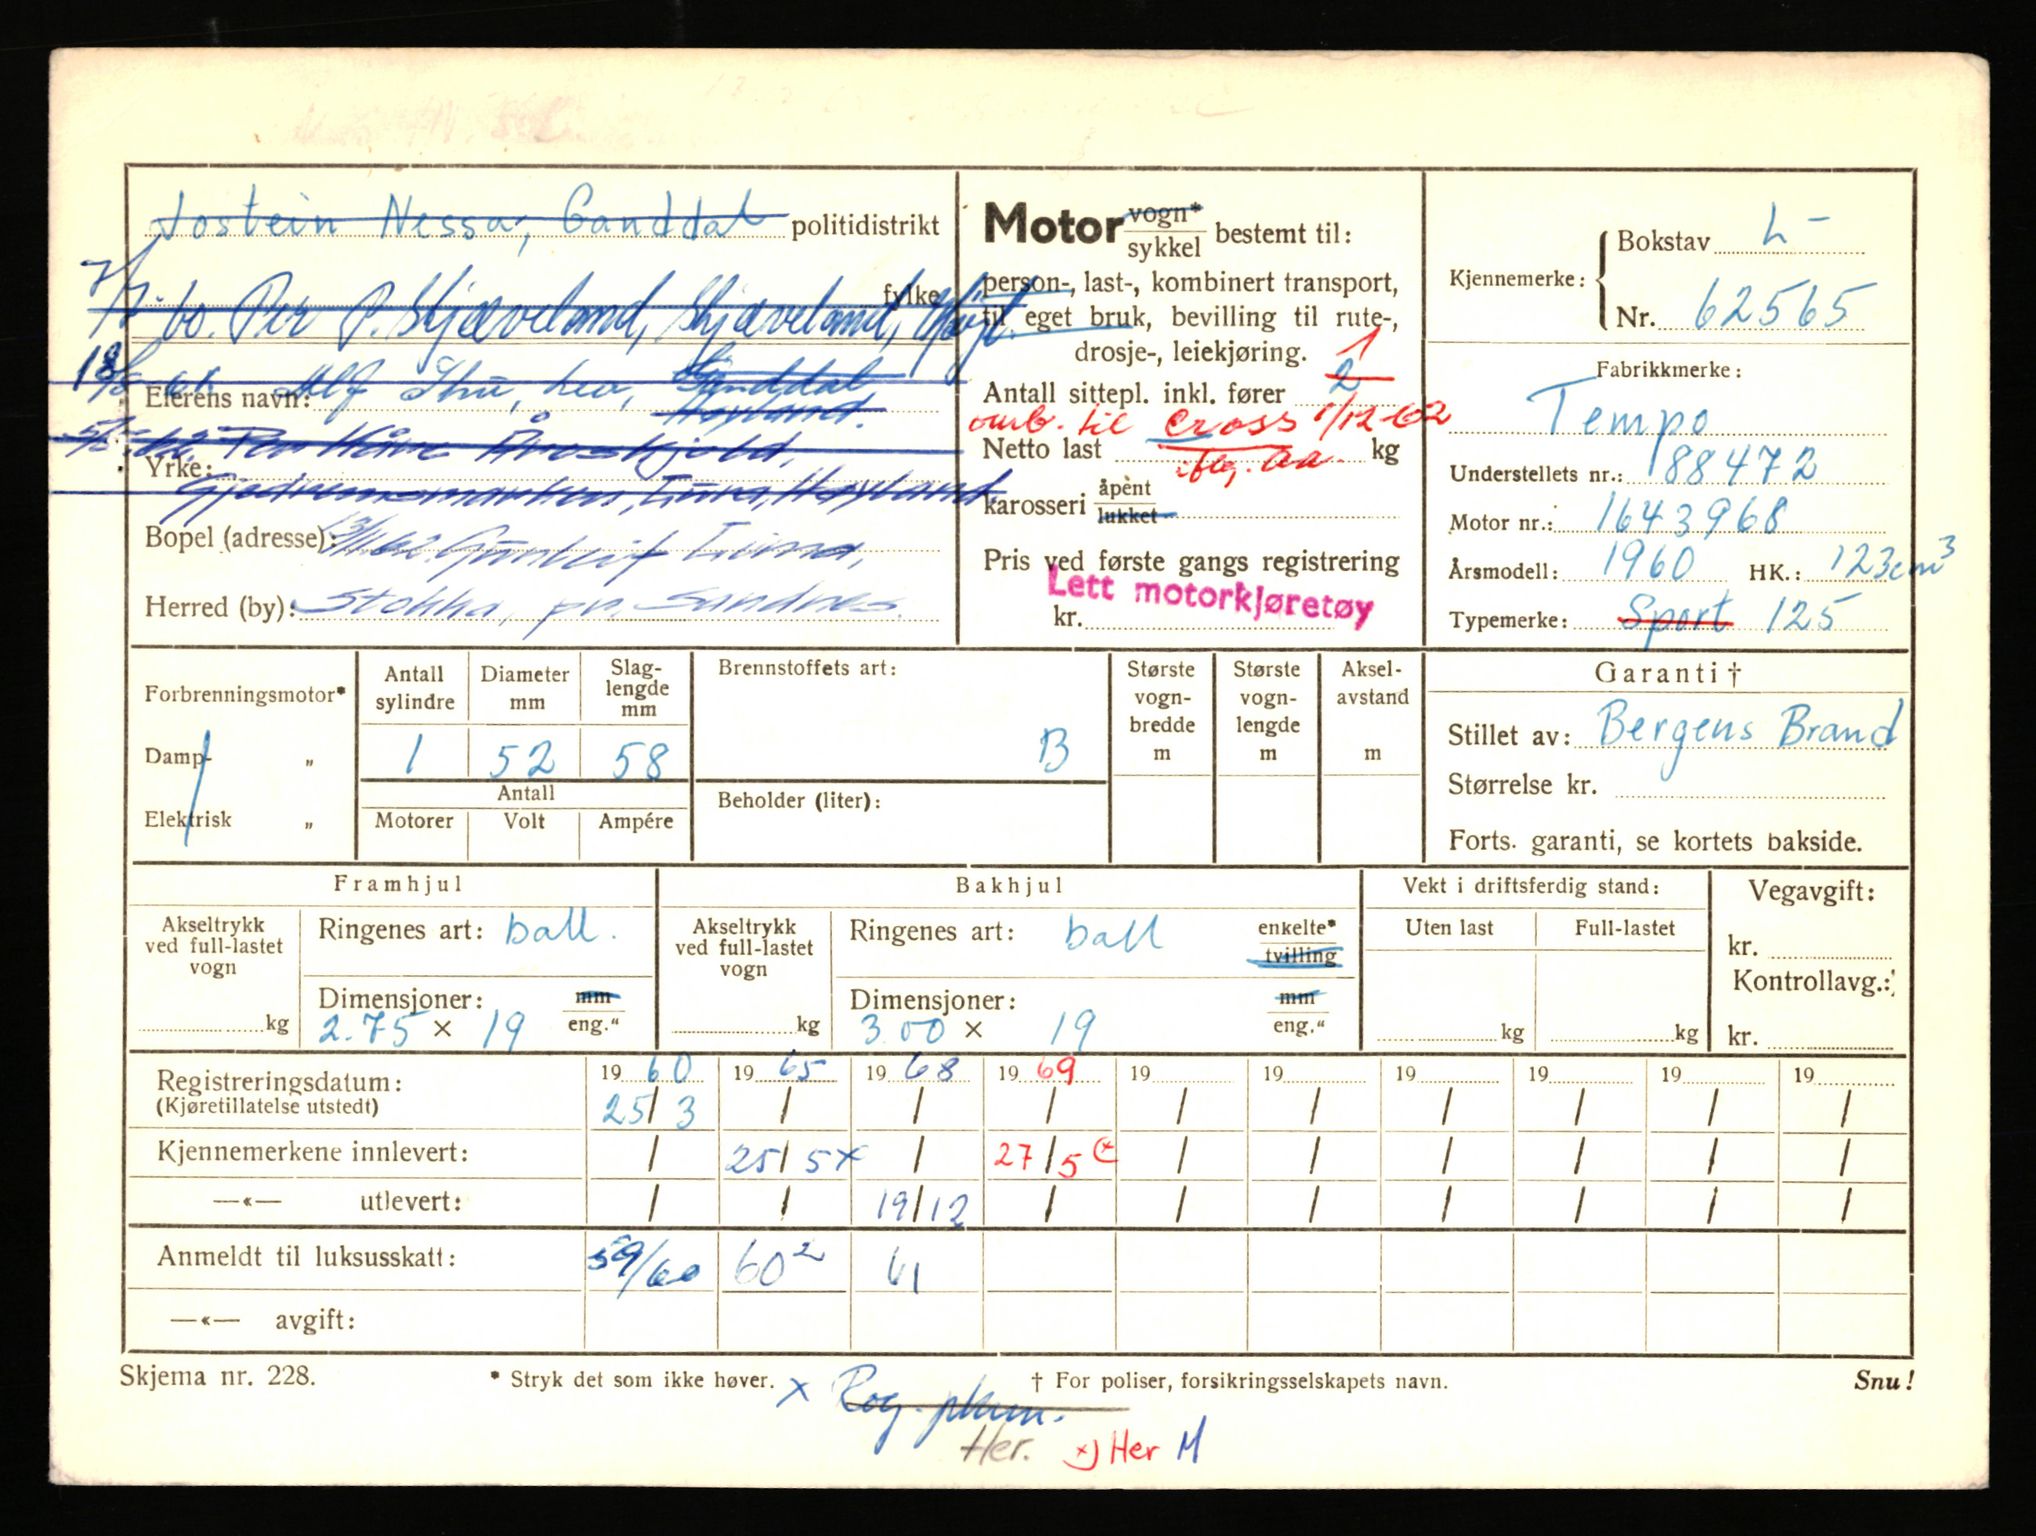 Jostein Nessa, Ganddal politidistrikt
7/7. 60. Per P. Skjæveland, Skjæveland, Høyl. fylke
18/8 61. Alf Thu, Lea, Ganddal
Eierens navn: Høyland.
5/5-62 Per Håvar Åroskjold,
Yrke:
Gjedremsmarken, Lura, Høyland
Bopel (adresse): 13/11 62. Gunleif Lima,
Herred (by): Stokka, pr. Sandnes.
Motor vogn* sykkel bestemt til:
person-, last-, kombinert transport,
til eget bruk, bevilling til rute-,
drosje-, leiekjøring. 1
Antall sittepl. inkl. fører 2
omb. til Cross 1/12-62
Netto last kg
karosseri åpent lukket
Pris ved første gangs registrering
Lett motorkjøretøy
kr.
Kjennemerke: Bokstav L-
Nr. 62565
Fabrikkmerke:
Tempo
Understellets nr.: 188472
Motor nr.: 1643968
Årsmodell: 1960 HK.: 123cm³
Typemerke: Sport 125
Forbrenningsmotor*
Damp- „
Elektrisk „
Antall sylindre Diameter mm Slag-lengde mm
1 52 58
Antall
Motorer Volt Ampére
Brennstoffets art:
B
Beholder (liter):
Største vogn-bredde m
Største vogn-lengde m
Aksel-avstand m
Garanti †
Stillet av: Bergens Brand
Størrelse kr.
Forts. garanti, se kortets bakside.
Framhjul
Akseltrykk ved full-lastet vogn kg
Ringenes art: ball.
Dimensjoner: mm
2.75 × 19 eng."
Bakhjul
Akseltrykk ved full-lastet vogn kg
Ringenes art: ball enkelte* tvilling
Dimensjoner: mm
3.00 × 19 eng."
Vekt i driftsferdig stand:
Uten last Full-lastet
kg kg
Vegavgift:
kr.
Kontrollavg.:
kr.
Registreringsdatum: 19 60 19 65 19 68 19 69 19 19 19 19 19 19
(Kjøretillatelse utstedt) 25/3 / / / / / / / / /
Kjennemerkene innlevert: / 25/5 x / 27/5 (* / / / / / /
—«— utlevert: / / 19/12 / / / / / / /
Anmeldt til luksusskatt: 59/60 60² 61
—«— avgift:
Skjema nr. 228. * Stryk det som ikke høver. † For poliser, forsikringsselskapets navn. Snu!
x Rog. plum.
Her. *) Her M